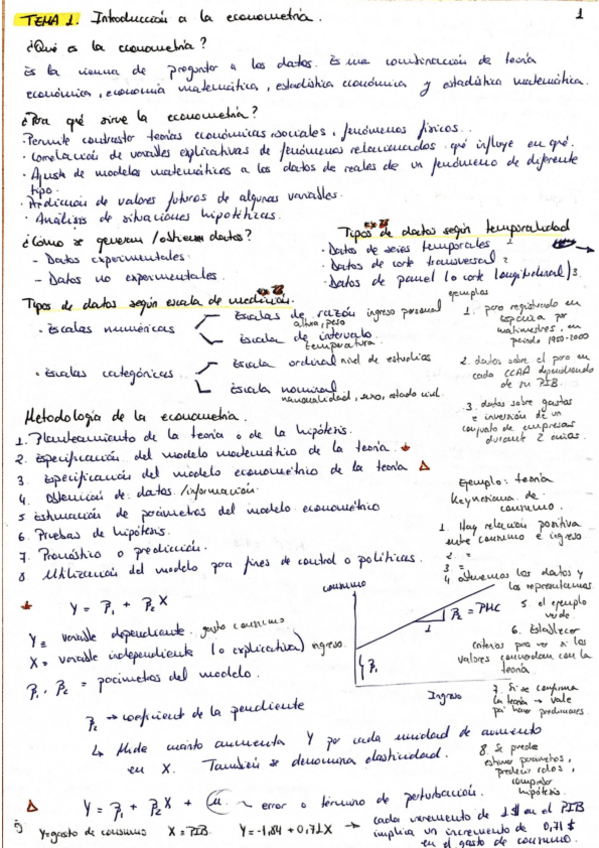 TEMA 1. Introducción a la econometría. 1
¿Qué es la econometría?
Es la ciencia de preguntar a los datos. Es una combinación de teoría
económica, economía matemática, estadística económica y estadística matemática.
¿Para qué sirve la econometría?
· Permite contrastar teorías económicas, sociales, fenómenos físicos...
· Correlación de variables explicativas de fenómenos relacionados. qué influye en qué.
· Ajuste de modelos matemáticos a los datos de reales de un fenómeno de diferente
tipo.
· Predicción de valores futuros de algunas variables.
· Análisis de situaciones hipotéticas.
¿Cómo se generan / obtienen datos?
- Datos experimentales.
- Datos no experimentales.
Tipos de datos según temporalidad
· Datos de series temporales 1
· Datos de corte transversal 2
· Datos de panel (o corte longitudinal) 3.
ejemplos
1. paro registrado en
España por
trimestres, en
periodo 1980-2000
2. datos sobre el paro en
cada CCAA dependiendo
de su PIB.
3. datos sobre gastos
e inversión de un
conjunto de empresas
durante 2 años.
Tipos de datos según escala de medición.
· Escalas numéricas
Escalas de razón ingreso personal
altura, peso
Escala de intervalo
temperatura
· Escalas categóricas
Escala ordinal nivel de estudios
Escala nominal
nacionalidad, sexo, estado civil.
Metodología de la econometría.
1. Planteamiento de la teoría o de la hipótesis.
2. Especificación del modelo matemático de la teoría.
3. Especificación del modelo econométrico de la teoría Δ
4. Obtención de datos / información.
5 Estimación de parámetros del modelo econométrico
6. Pruebas de hipótesis.
7. Pronóstico o predicción.
8 Utilización del modelo para fines de control o políticas.
Ejemplo: teoría
Keynesiana de
consumo.
1. Hay relación positiva
entre consumo e ingreso
2. =
3 =
4 obtenemos los datos y
los representamos.
5. el ejemplo
verde.
6. Establecer
criterios para ver si los
valores concuerdan con la
teoría.
7. Si se confirma
la teoría → vale
para hacer predicciones.
8. Se puede
estimar parámetros,
predecir
hipótesis.
Y = β₁ + β₂X
Y = variable dependiente. gasto consumo
X = variable independiente (o explicativa) ingreso.
β₁, β₂ = parámetros del modelo.
β₂ → coeficient de la pendiente
↳ Mide cuánto aumenta Y por cada unidad de aumento
en X. También se denomina elasticidad.
consumo
β₂ = PMC
1
β₁
Ingreso
Δ Y = β₁ + β₂X + u ~ error o término de perturbación.
5) Y=gasto de consumo X=PIB. Y=-1,84+0,71X → cada incremento de 1$ en el PIB
implica un incremento de 0,71 $
en el gasto de consumo.